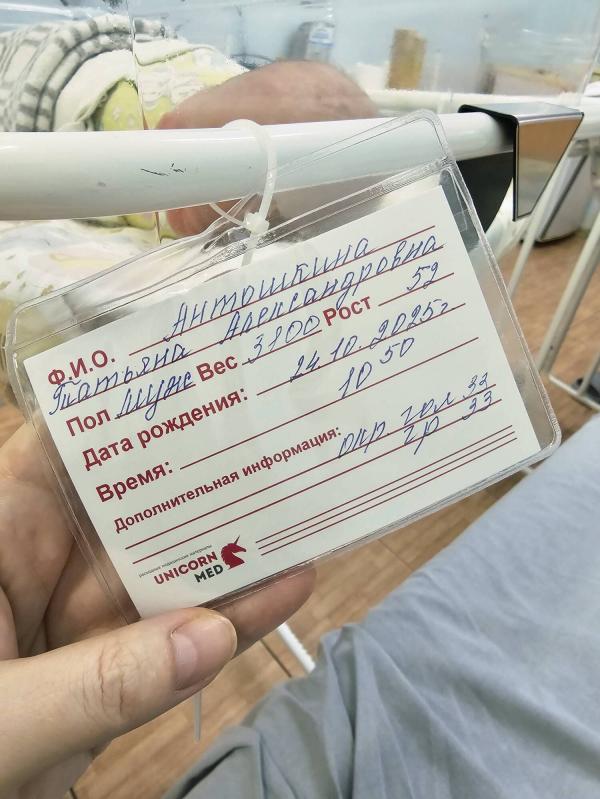 Антошкина
Ф.И.О. Татьяна Александровна
Пол муж Вес 3100 Рост 52
Дата рождения: 24.10.2025г
Время: 10 50
Дополнительная информация: окр. гол 33
гр 33
расходные медицинские материалы
UNICORN
MED